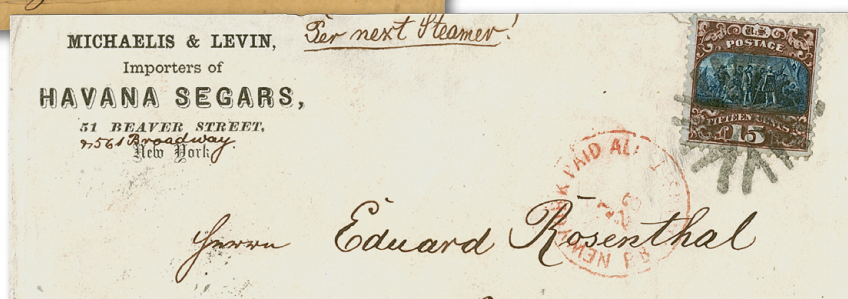 MICHAELIS & LEVIN,
Importers of
HAVANA SEGARS,
51 BEAVER STREET,
561 Broadway.
New York
Per next Steamer!
U.S.
POSTAGE
FIFTEEN CENTS
15
NEW YORK PAID ALL
Herrn Eduard Rosenthal